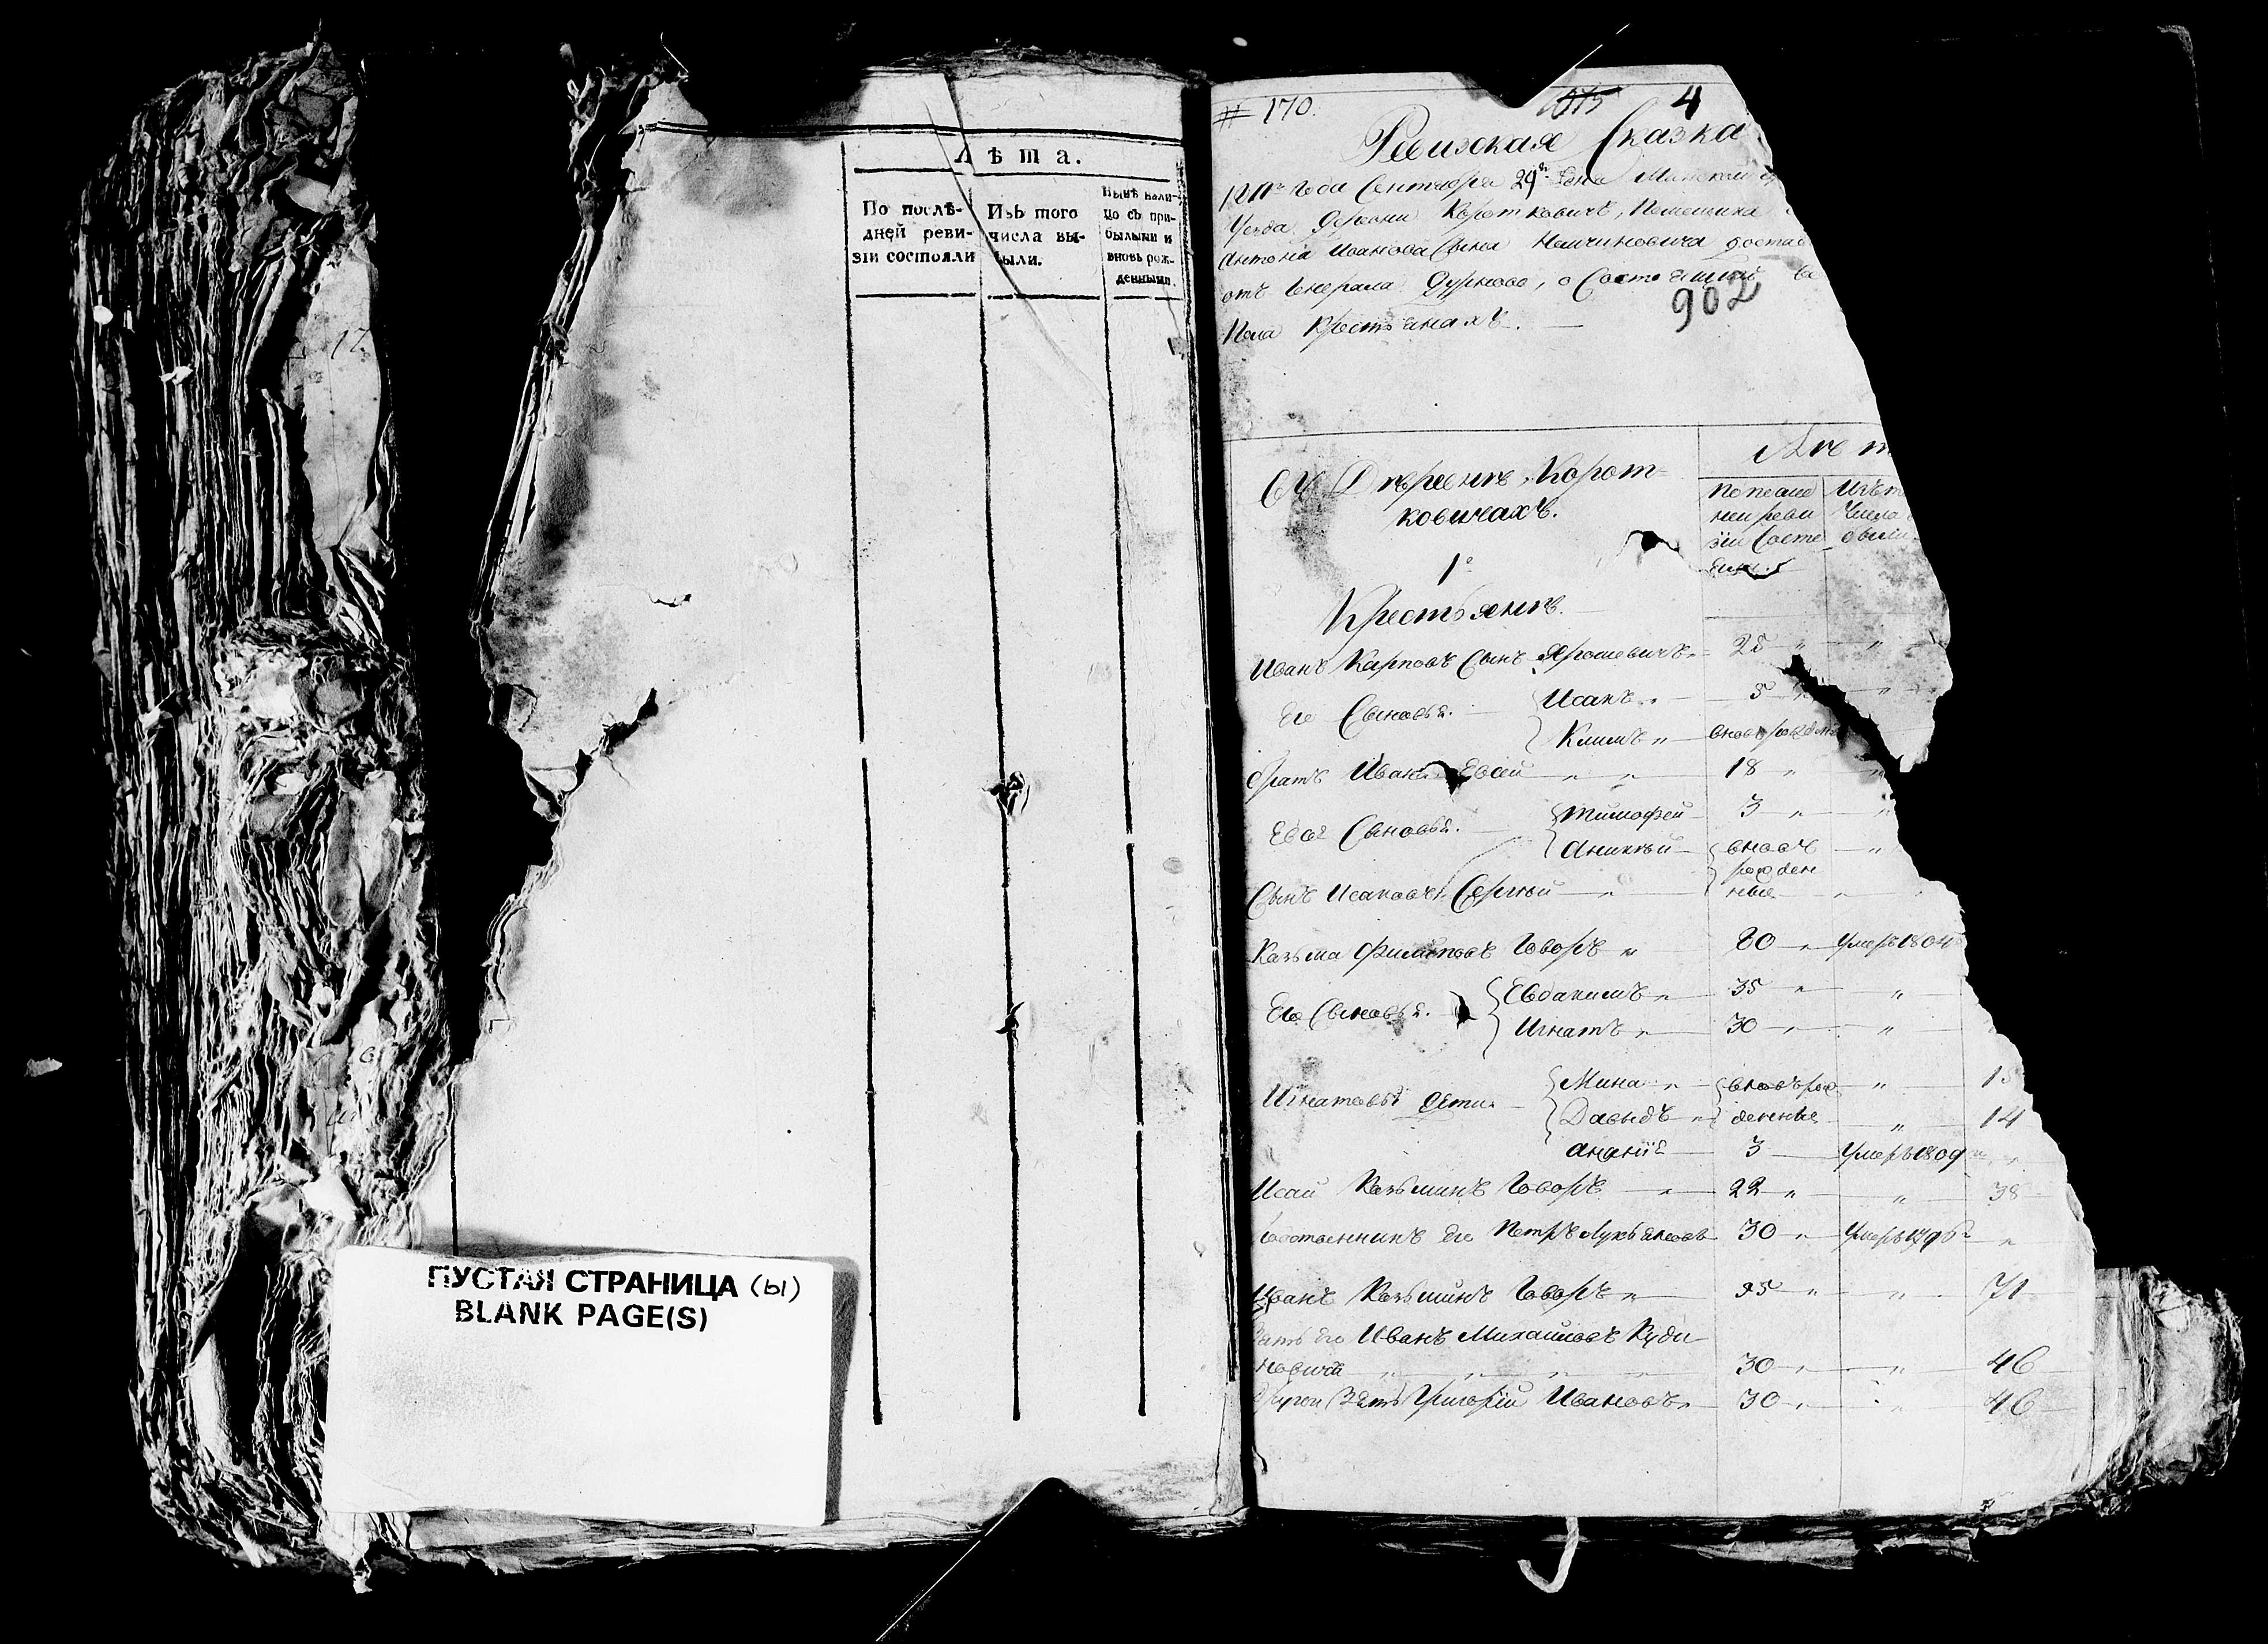 Лѣта.
По послѣ-
дней реви-
зіи состояли
Изъ того
числа вы-
были.
Нынѣ нали-
цо съ при-
былыми и
вновь рож-
денными.
ПУСТАЯ СТРАНИЦА (ы)
BLANK PAGE(S)
# 170.
1075 4
Ревизская Сказка
1811го Года Сентября 29го дня Минской
Уезда деревни Коротковичъ, Помещика
Антонія Иванова Сына Немчиновича достав
отъ Генерала Дурново, о Состоящихъ
902
Пола Крестьянахъ.
Лѣт
Въ Деревнѣ Корот-
ковичахъ.
По послѣд
ней реви
зіи Состо
Изъ т
числа
выбыли
1е
Крестьянѣ.
Иванъ Карповъ Сынъ Ярошевичъ 25 "
Его Сыновья. Исакъ 5 "
Климъ вновь рожден
Братъ Ивана Евсей 18 "
Сыновья. Тимофей 3 "
Аникѣй вновь "
рожден
ные
Сынъ Исаковъ Сергѣй "
Козьма Филиповъ Говоръ 80 Умеръ 1804
Его Сыновья. Евдакимъ 35 "
Игнатъ 30 "
Игнатовы дети Мина вновь рож " 15
Давыдъ денные " 14
Ананій 3 Умеръ 1809
Исай Козьминъ Говоръ 22 " 38
его Петръ Лукьяновъ 30 Умеръ 1796 "
Иванъ Козьминъ Говоръ " 71
Зять его Иванъ Михайловъ Куди-
новичъ 30 " 46
Другой Зять Григорій Ивановъ 30 " 46